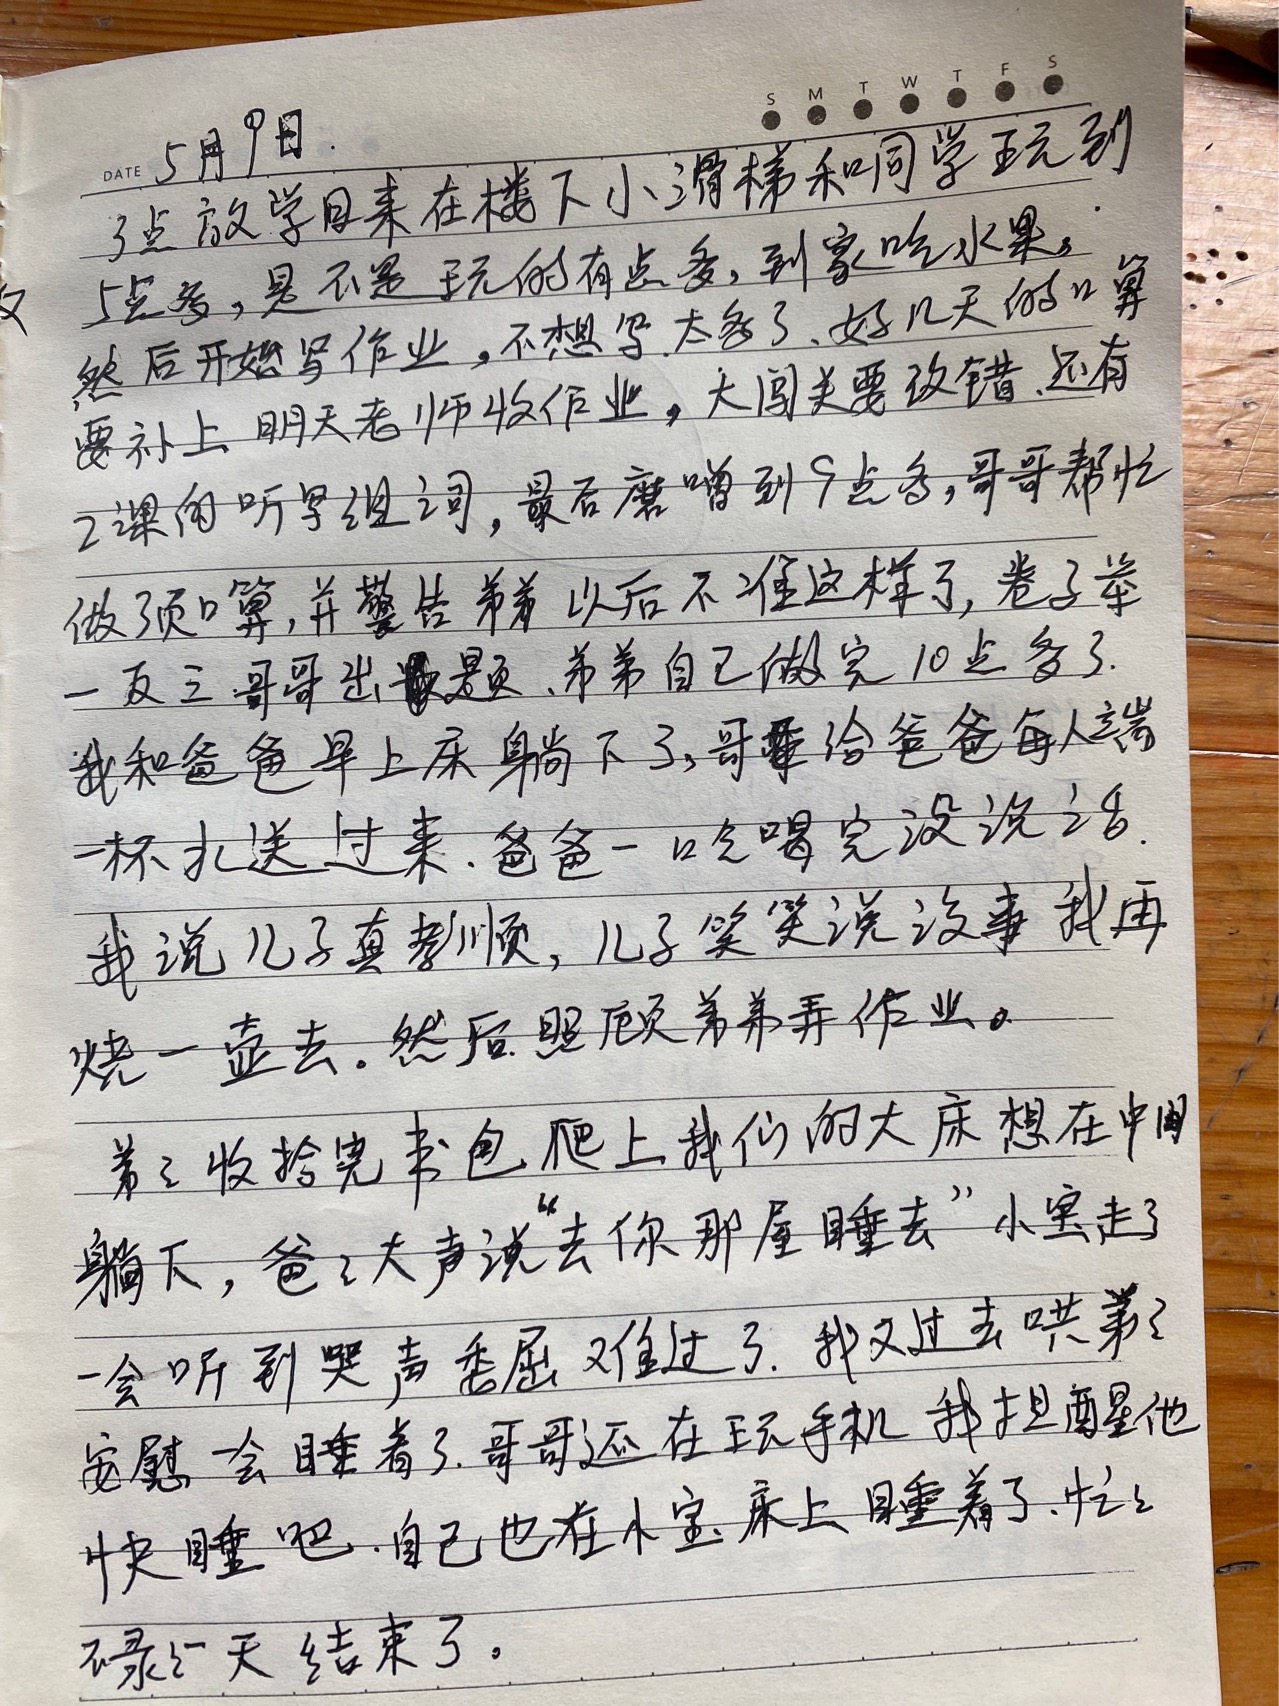 S M T W T F S
DATE 5月9日.
3点放学回来在楼下小滑梯和同学玩到
5点多，是不是玩的有点多，到家吃水果。
然后开始写作业。不想写.太多了、好几天的口算
要补上明天老师收作业。大闯关要改错.还有
2课的听写组词，最后磨噌到9点多，哥哥帮忙
做了页口算，并警告弟弟以后不准这样了，卷子举
一反三.哥哥出题、弟弟自己做完10点多了.
我和爸爸早上床躺下了，哥给爸爸每人端
一杯水送过来.爸爸一口气喝完没说话.
我说儿子真孝顺，儿子笑笑说没事我再
烧一壶去。然后照顾弟弟弄作业。
弟々收拾完书包爬上我们的大床想在中间
躺下，爸々大声说“去你那屋睡去”小宝走了
一会听到哭声委屈又难过了.我又过去哄弟々
安慰一会睡着了.哥哥还在玩手机我提醒他
快睡吧.自己也在小宝床上睡着了.忙々
碌々一天结束了。